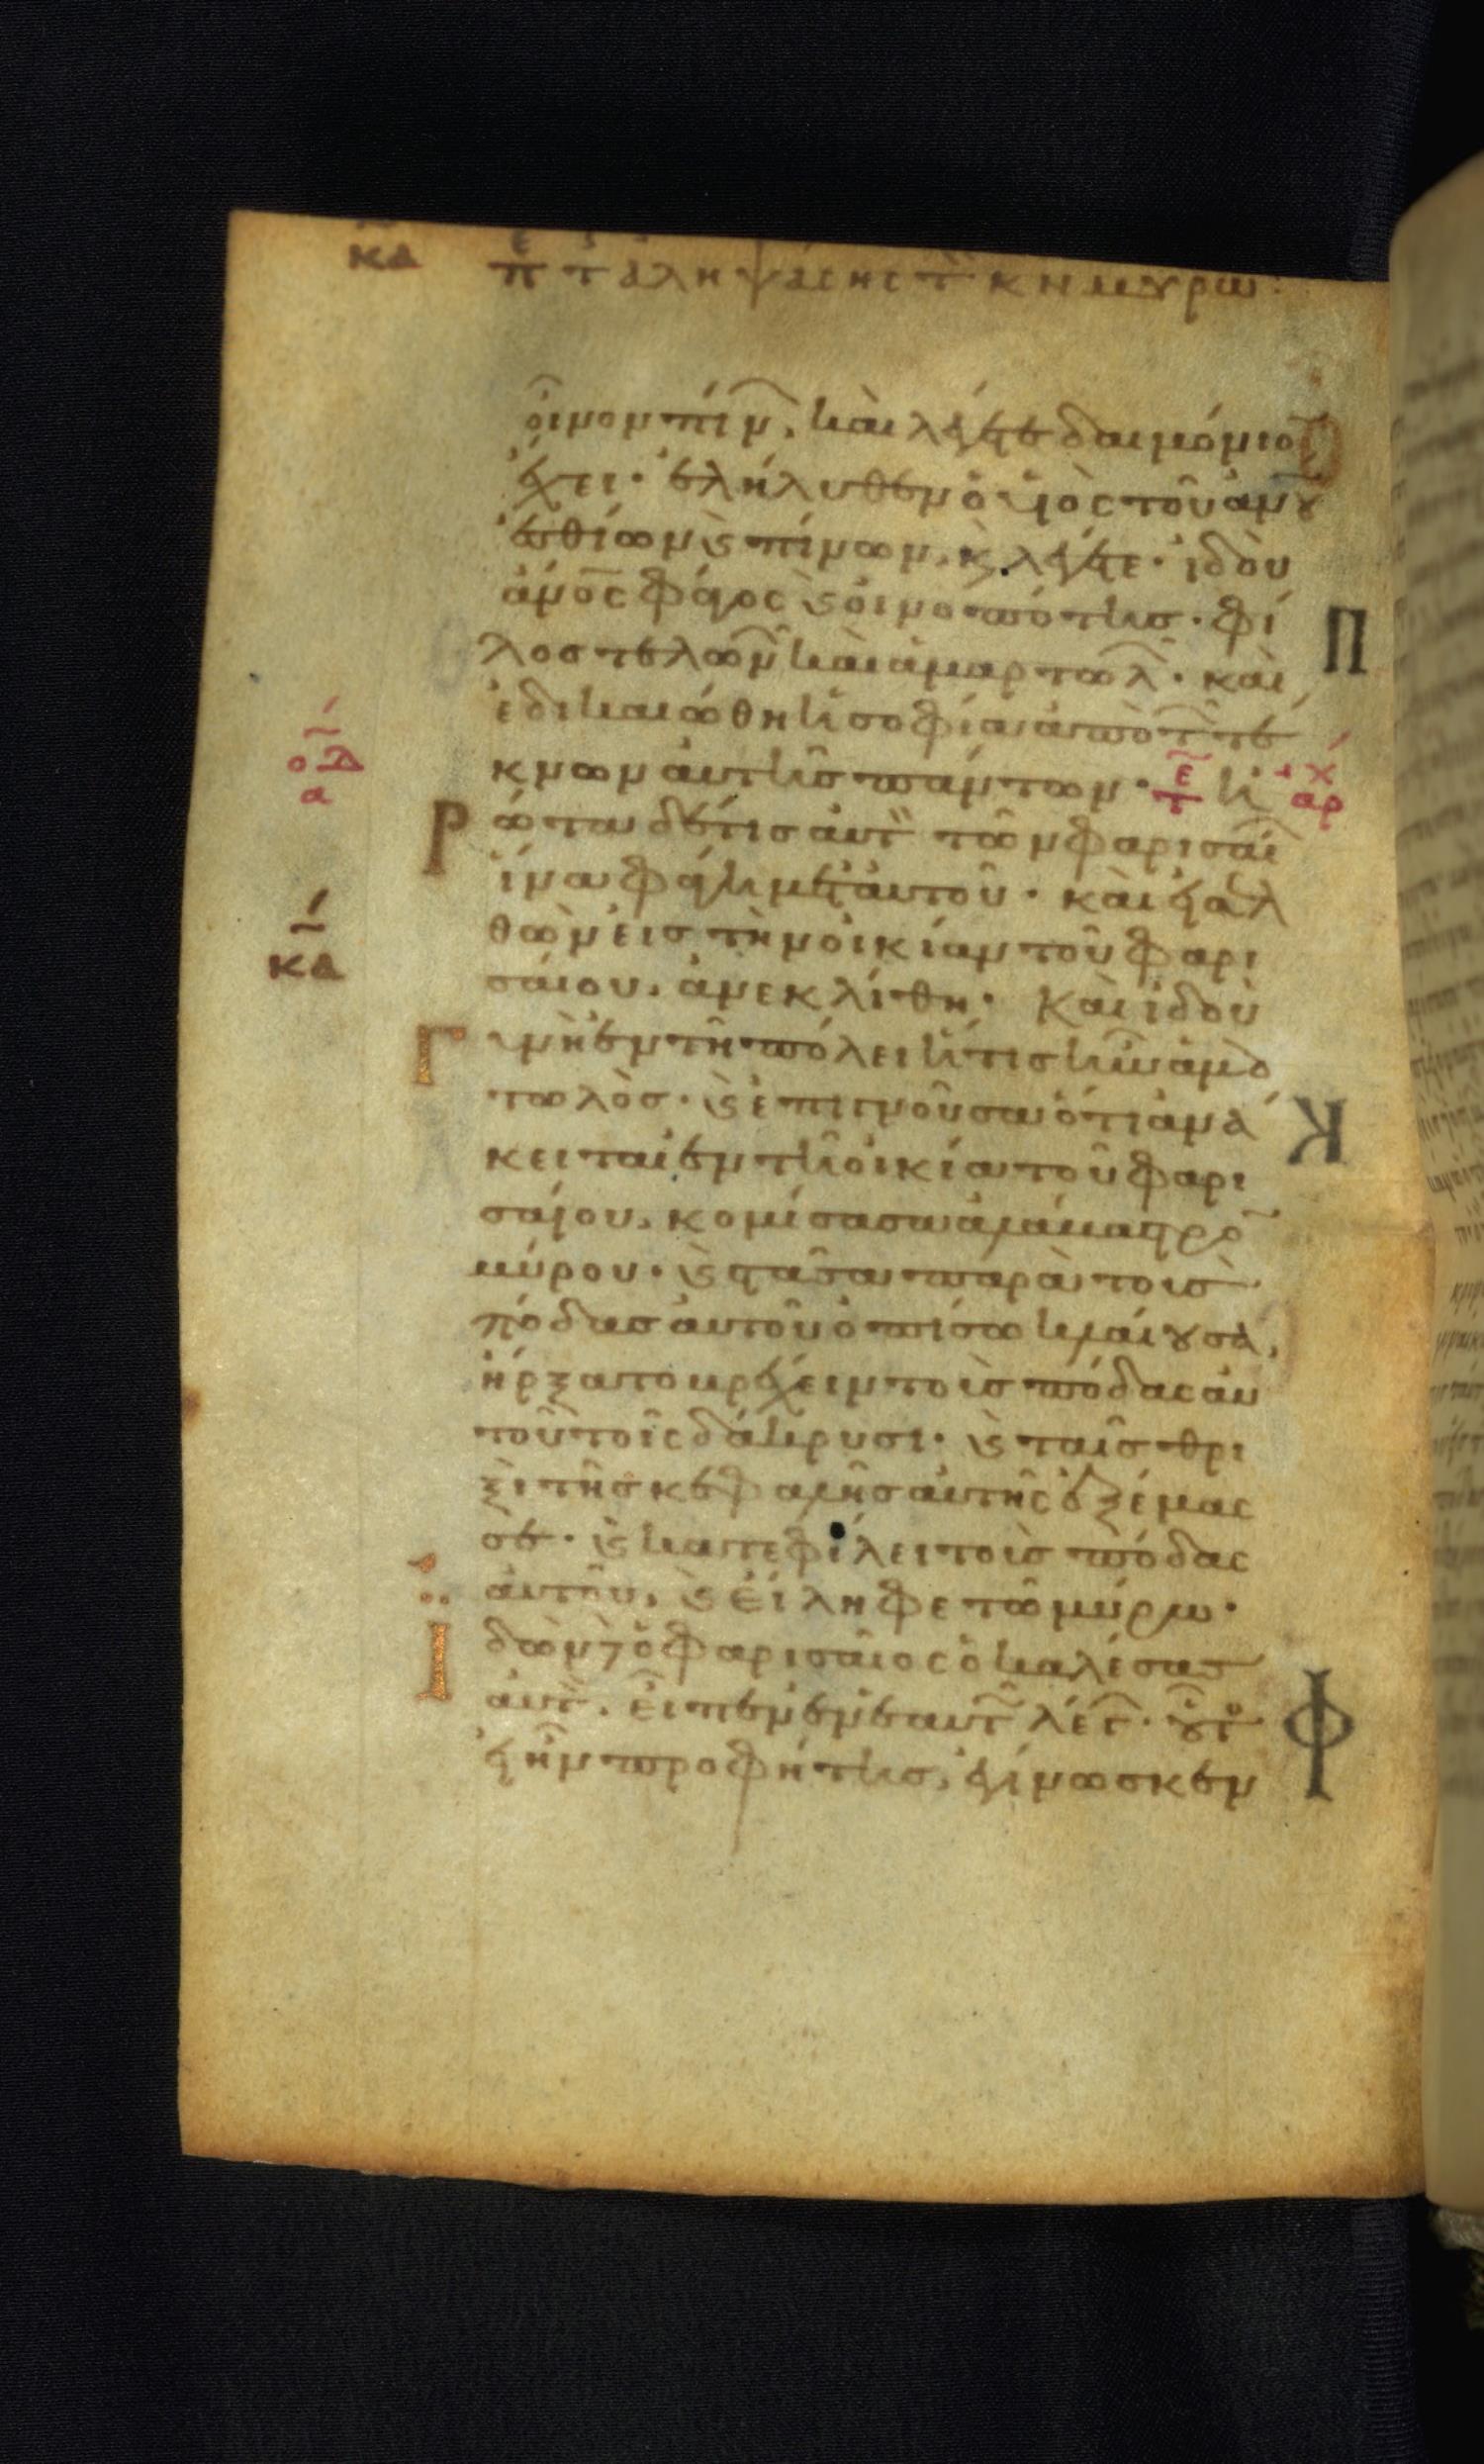 κα π τ αληψάσης τ κν μύρω:
οἶνον πίν, καὶ λέγετε δαιμόνιο
ἔχει· ἐλήλυθεν ὁ υἱὸς τοῦ ἀνου
ἐσθίων ϗ πίνων, κ λέγετε· ἰδοὺ
ἄνος φάγος ϗ οἰνοπότης· φί
λος τελων καὶ ἁμαρτωλ· καὶ
ἐδικαιώθη ἡ σοφία ἀπὸ τ τέ
κνων αὐτῆς πάντων· τε
αρχ
οδ
α
Ρώτα δέ τις αὐτ τῶν φαρισαί
ἵνα φάγη μετ αὐτοῦ· καὶ εἰσελ
θὼν εἰς τὴν οἰκίαν τοῦ φαρι
κα
σαίου, ἀνεκλίθη· Καὶ ἰδοὺ
Γυνὴ ἐν τῆ πόλει ἥτις ἦν ἁμαρ
τωλὸς· ϗ ἐπιγνοῦσα ὅτι ἀνά
κειται ἐν τῆ οἰκία τοῦ φαρι
σαίου, κομίσασα ἀλάβαστρο
μύρου· ϗ στᾶσα παρὰ τοὺς
πόδας αὐτοῦ ὀπίσω κλαίουσα,
ἤρξατο βρέχειν τοὺς πόδας αὐ
τοῦ τοῖς δάκρυσι· ϗ ταῖς θρι
ξὶ τῆς κεφαλῆς αὐτῆς ἐξέμας
σε· ϗ κατεφίλει τοὺς πόδας
αὐτοῦ, ϗ ἤλειφε τῶ μύρω·
Ἰδὼν δὲ ὁ φαρισαῖος ὁ καλέσας
αὐτ, εἶπεν ἐν ἑαυτ λέγ· οὗτ
εἰ ἦν προφήτης, ἐγίνωσκεν